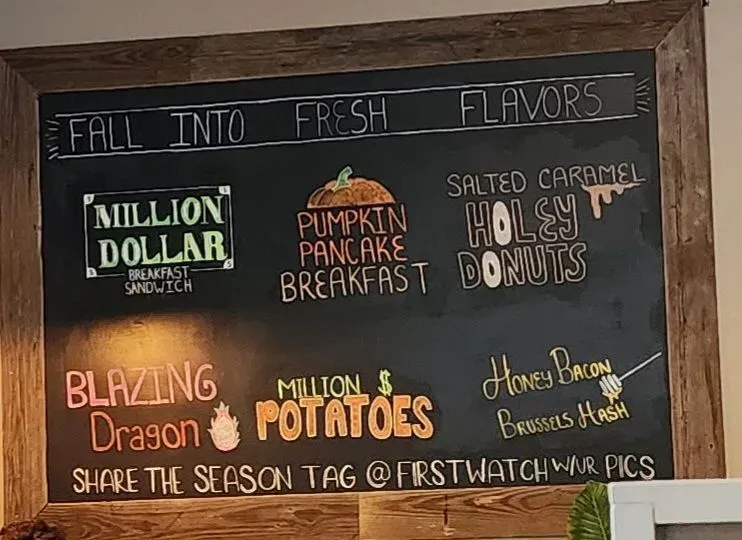 FALL INTO FRESH FLAVORS
MILLION
DOLLAR
BREAKFAST
SANDWICH
PUMPKIN
PANCAKE
BREAKFAST
SALTED CARAMEL
HOLEY
DONUTS
BLAZING
Dragon
MILLION $
POTATOES
HONEY BACON
BRUSSELS HASH
SHARE THE SEASON TAG @FIRSTWATCH W/UR PICS